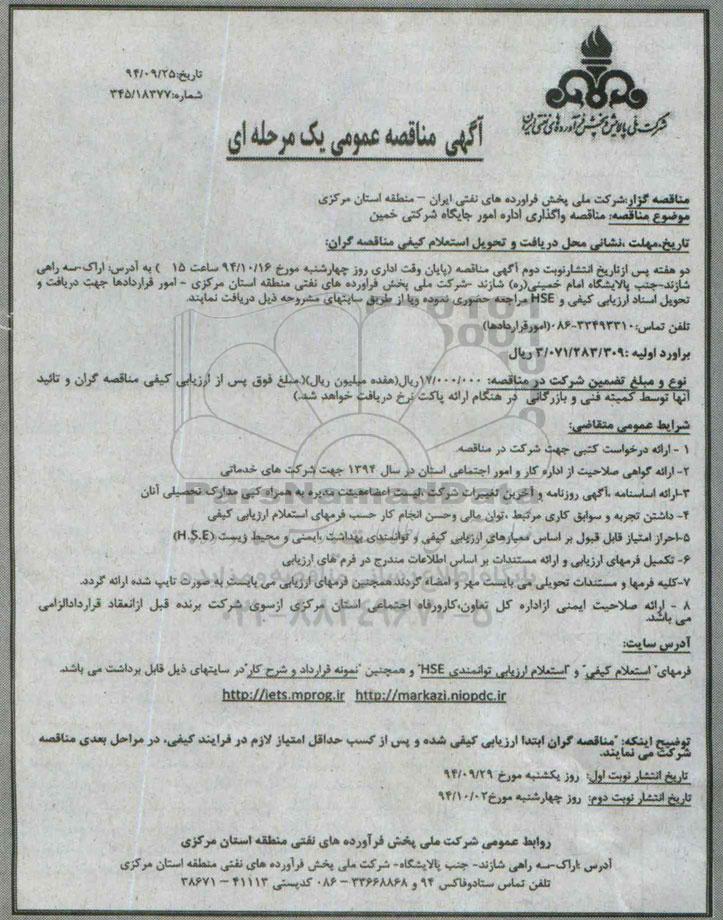 شرکت ملی پالایش و پخش فرآورده های نفتی ایران
تاریخ:۹۴/۰۹/۲۵
شماره:۳۴۵/۱۸۳۷۷
آگهی مناقصه عمومی یک مرحله ای
مناقصه گزار:شرکت ملی پخش فراورده های نفتی ایران – منطقه استان مرکزی
موضوع مناقصه: مناقصه واگذاری اداره امور جایگاه شرکتی خمین
تاریخ،مهلت ،نشانی محل دریافت و تحویل استعلام کیفی مناقصه گران:
دو هفته پس ازتاریخ انتشارنوبت دوم آگهی مناقصه (پایان وقت اداری روز چهارشنبه مورخ ۹۴/۱۰/۱۶ ساعت ۱۵ ) به آدرس: اراک-سه راهی
شازند-جنب پالایشگاه امام خمینی(ره) شازند -شرکت ملی پخش فراورده های نفتی منطقه استان مرکزی - امور قراردادها جهت دریافت و
تحویل اسناد ارزیابی کیفی و HSE مراجعه حضوری نموده ویا از طریق سایتهای مشروحه ذیل دریافت نمایند.
تلفن تماس:۳۳۴۹۳۳۱۰-۰۸۶(امورقراردادها)
براورد اولیه :۳/۰۷۱/۲۸۳/۳۰۹ ریال
نوع و مبلغ تضمین شرکت در مناقصه: ۱۷/۰۰۰/۰۰۰ریال(هفده میلیون ریال)(.مبلغ فوق پس از ارزیابی کیفی مناقصه گران و تائید
آنها توسط کمیته فنی و بازرگانی در هنگام ارائه پاکت نرخ دریافت خواهد شد.)
شرایط عمومی متقاضی:
۱ - ارائه درخواست کتبی جهت شرکت در مناقصه.
۲- ارائه گواهی صلاحیت از اداره کار و امور اجتماعی استان در سال ۱۳۹۴ جهت شرکت های خدماتی
۳-ارائه اساسنامه ،آگهی روزنامه و آخرین تغییرات شرکت ،لیست اعضاءهیئت مدیره به همراه کپی مدارک تحصیلی آنان
۴- داشتن تجربه و سوابق کاری مرتبط ،توان مالی وحسن انجام کار حسب فرمهای استعلام ارزیابی کیفی
۵-احراز امتیاز قابل قبول بر اساس معیارهای ارزیابی کیفی و توانمندی بهداشت ،ایمنی و محیط زیست (H.S.E)
۶- تکمیل فرمهای ارزیابی و ارائه مستندات بر اساس اطلاعات مندرج در فرم های ارزیابی
۷-کلیه فرمها و مستندات تحویلی می بایست مهر و امضاء گردند.همچنین فرمهای ارزیابی می بایست به صورت تایپ شده ارائه گردد.
۸ - ارائه صلاحیت ایمنی ازاداره کل تعاون،کارورفاه اجتماعی استان مرکزی ازسوی شرکت برنده قبل ازانعقاد قراردادالزامی
می باشد.
آدرس سایت:
فرمهای" استعلام کیفی" و "استعلام ارزیابی توانمندی HSE" و همچنین "نمونه قرارداد و شرح کار"در سایتهای ذیل قابل برداشت می باشد.
http://iets.mprog.ir http://markazi.niopdc.ir
توضیح اینکه: "مناقصه گران ابتدا ارزیابی کیفی شده و پس از کسب حداقل امتیاز لازم در فرایند کیفی، در مراحل بعدی مناقصه
شرکت می نمایند.
تاریخ انتشار نوبت اول: روز یکشنبه مورخ ۹۴/۰۹/۲۹
تاریخ انتشار نوبت دوم: روز چهارشنبه مورخ۹۴/۱۰/۰۲
روابط عمومی شرکت ملی پخش فرآورده های نفتی منطقه استان مرکزی
آدرس :اراک-سه راهی شازند- جنب پالایشگاه- شرکت ملی پخش فرآورده های نفتی منطقه استان مرکزی
تلفن تماس ستادوفاکس ۹۴ و ۳۳۶۶۸۸۶۸ – ۰۸۶ کدپستی ۴۱۱۱۳ – ۳۸۶۷۱